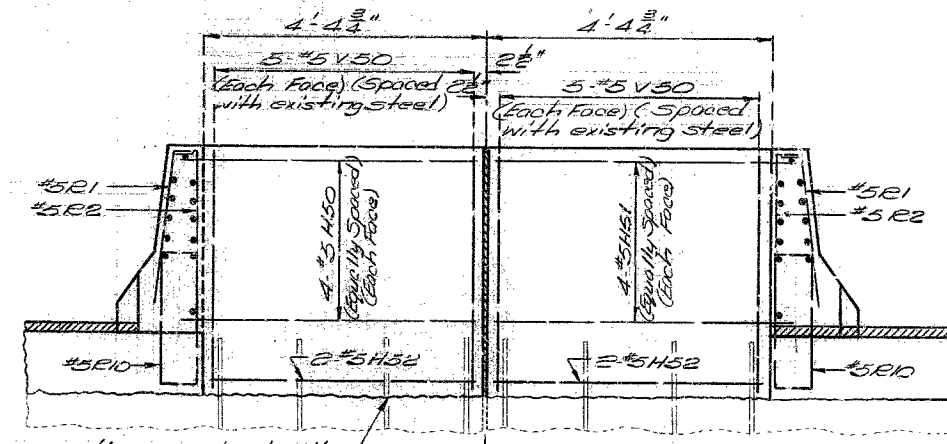 4'-4 3/4"
4'-4 3/4"
5-#5 V50
(Each Face) (Spaced
with existing steel)
2 1/2"
2 1/2"
5-#5 V50
(Each Face) (Spaced
with existing steel)
#5R1
#5R2
4-#5 H50
(Equally Spaced)
(Each Face)
4-#5H51
(Equally Spaced)
(Each Face)
#5R1
#5R2
#5R10
2-#5H52
2-#5H52
#5R10